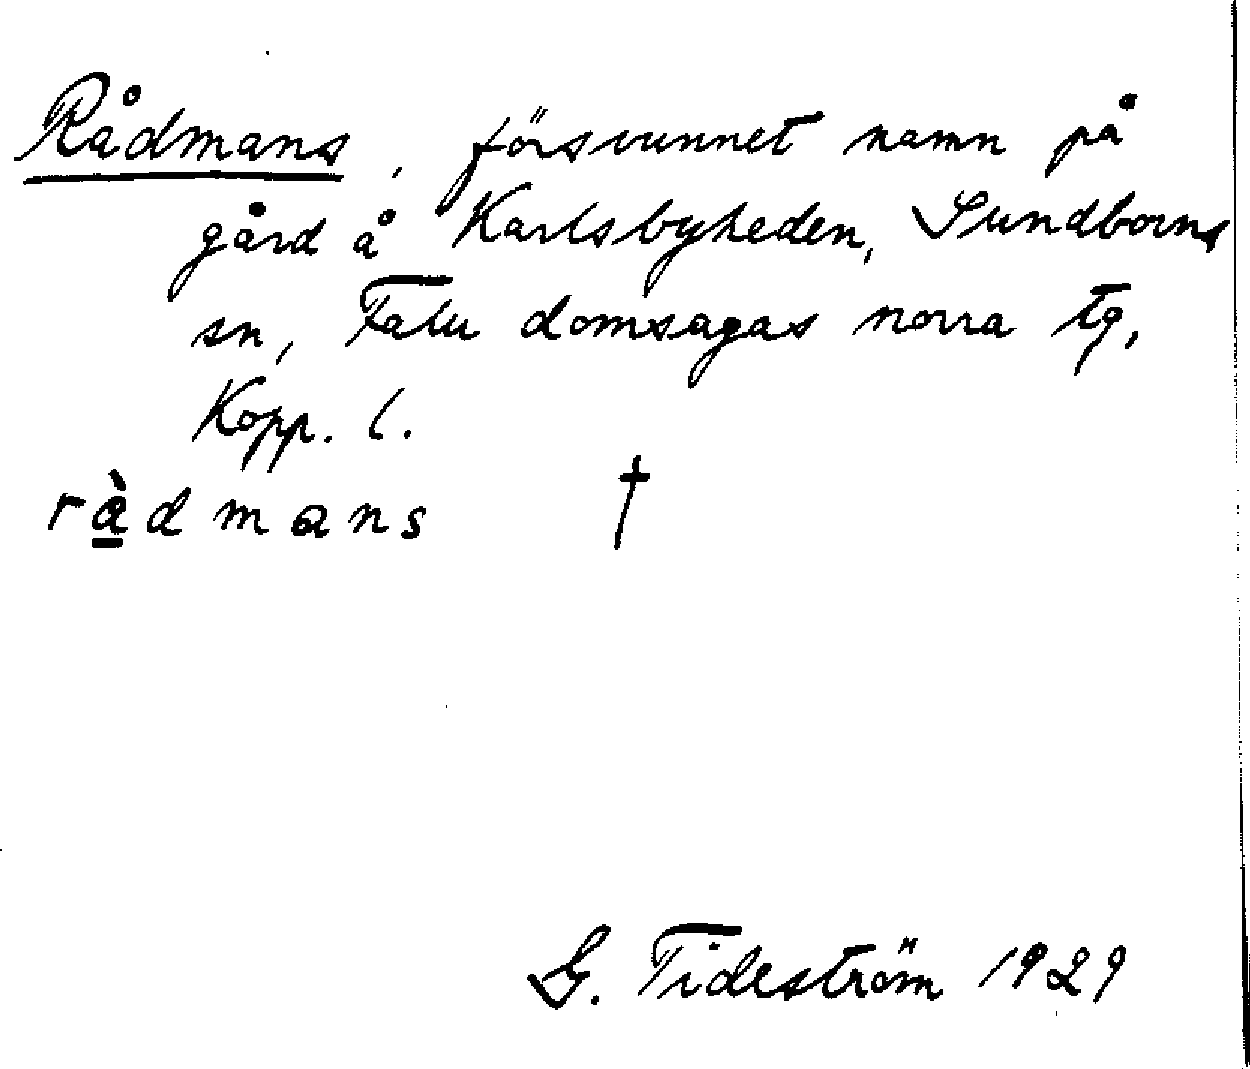 Rådmans, försvunnet namn på
gård å Karlsbyheden, Sundborns
sn, Falu domsagas norra tg,
Kopp. l.
rà̱dmans †
G. Tideström 1929